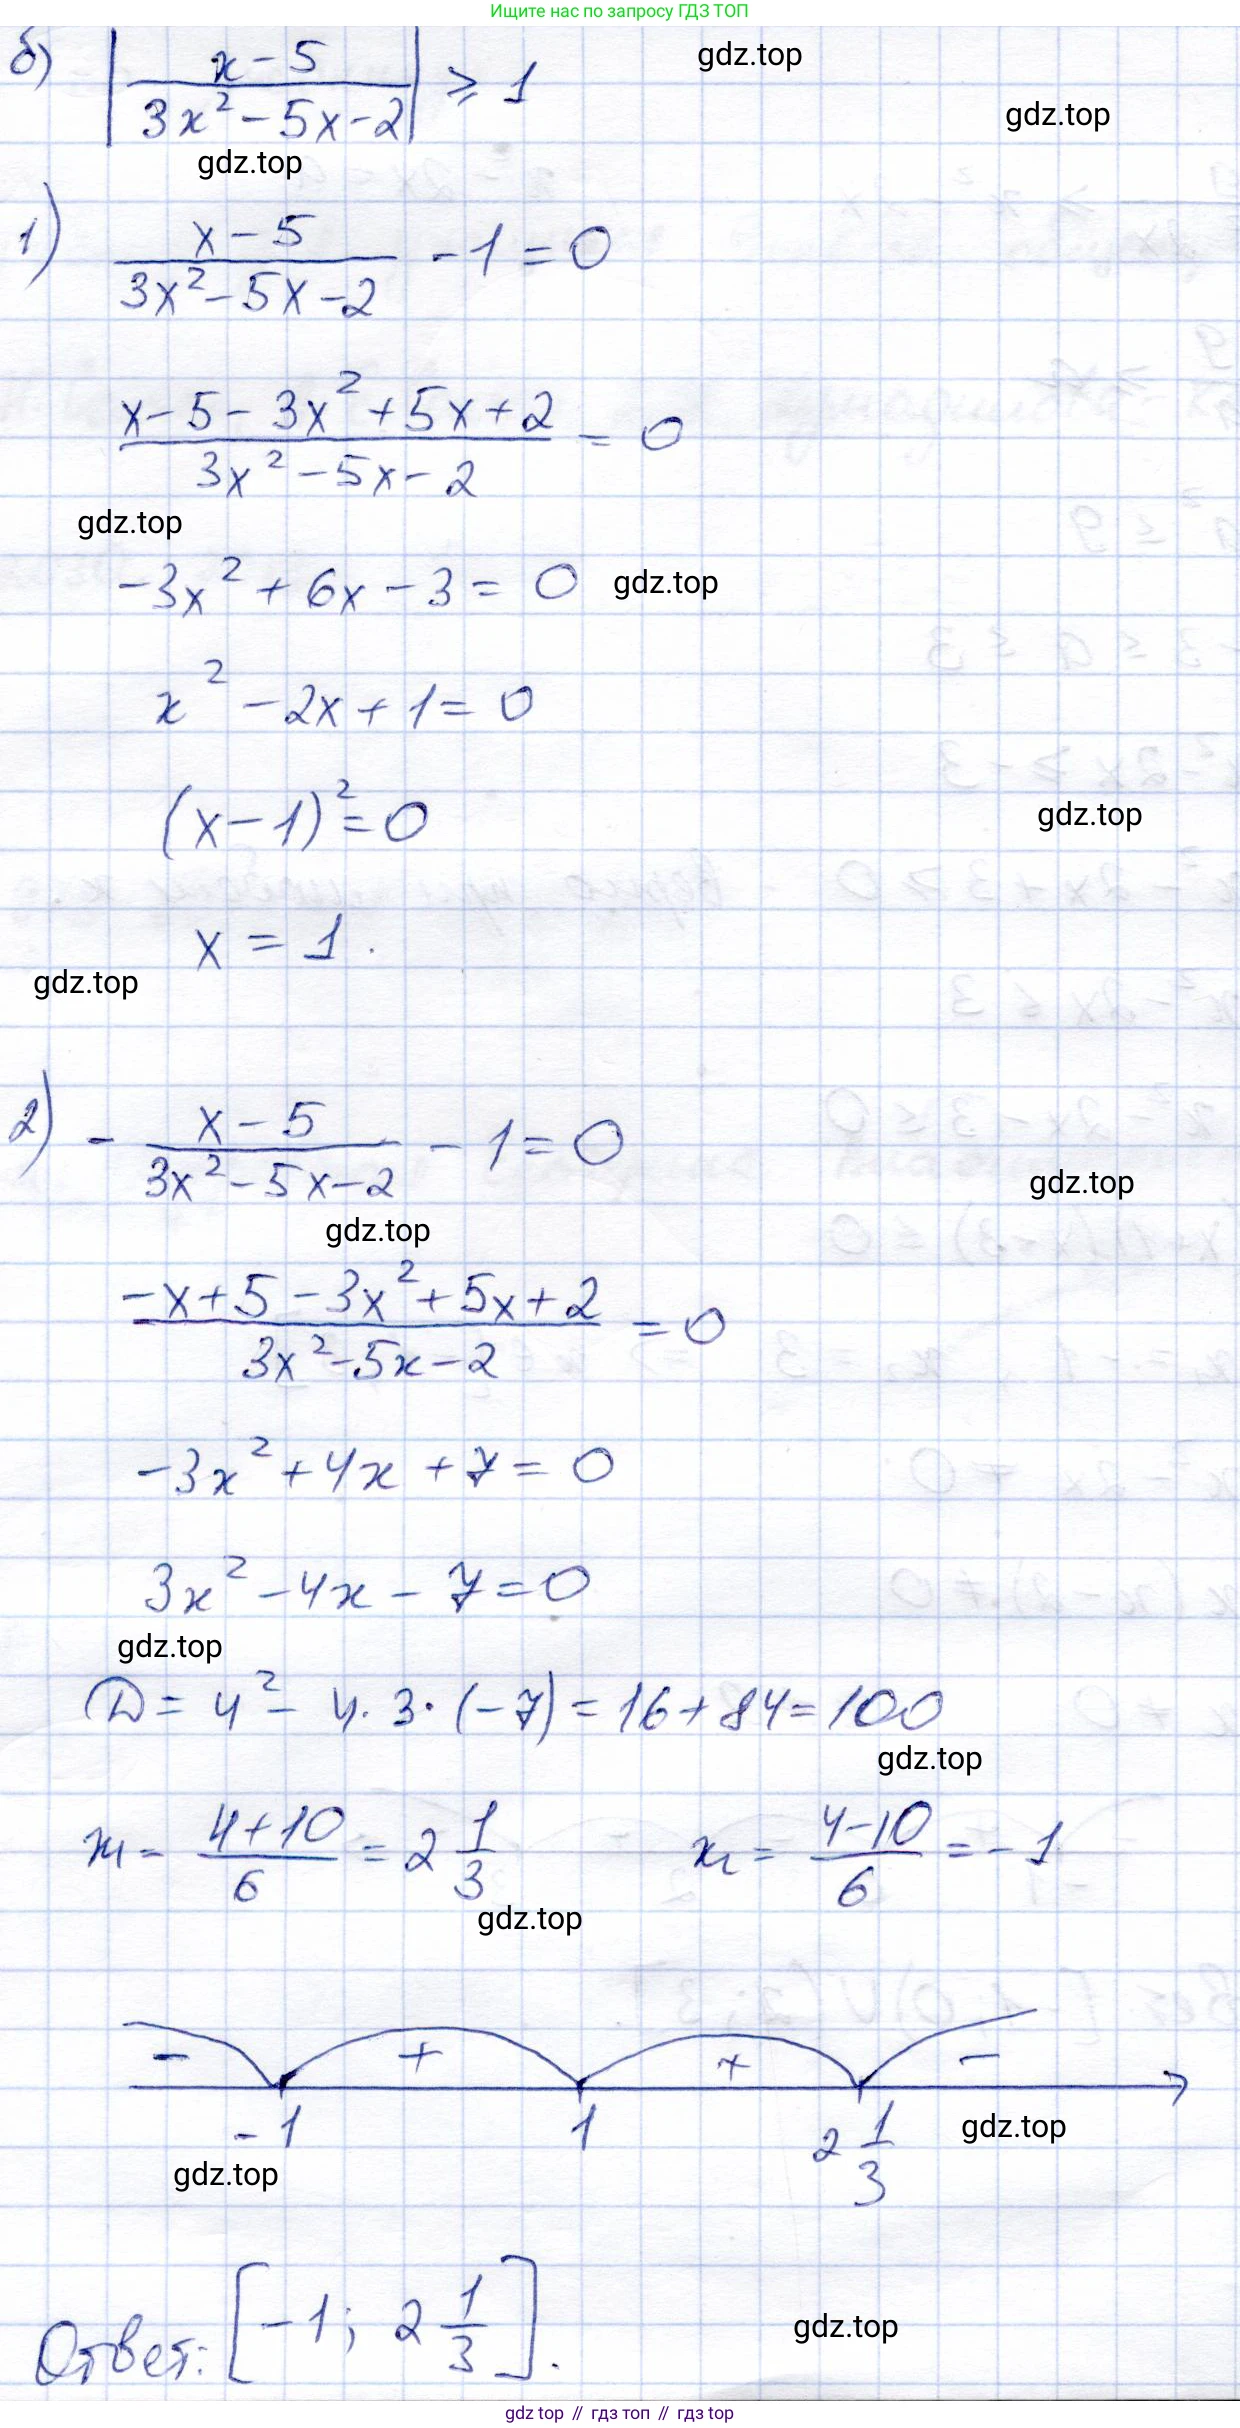 Ищите нас по запросу ГДЗ ТОП
б) |(x-5)/(3x²-5x-2)| ⩾ 1
gdz.top
gdz.top
gdz.top
1) (x-5)/(3x²-5x-2) - 1 = 0
(x-5-3x²+5x+2)/(3x²-5x-2) = 0
gdz.top
-3x² + 6x - 3 = 0
gdz.top
x² - 2x + 1 = 0
(x-1)² = 0
gdz.top
x = 1.
gdz.top
2) - (x-5)/(3x²-5x-2) - 1 = 0
gdz.top
gdz.top
(-x+5-3x²+5x+2)/(3x²-5x-2) = 0
-3x² + 4x + 7 = 0
3x² - 4x - 7 = 0
gdz.top
D = 4² - 4·3·(-7) = 16 + 84 = 100
gdz.top
x₁ = (4+10)/6 = 2 1/3 x₂ = (4-10)/6 = -1
gdz.top
- + + -
-1 1 2 1/3
gdz.top
gdz.top
Ответ: [-1; 2 1/3].
gdz.top
gdz top // гдз топ // гдз top